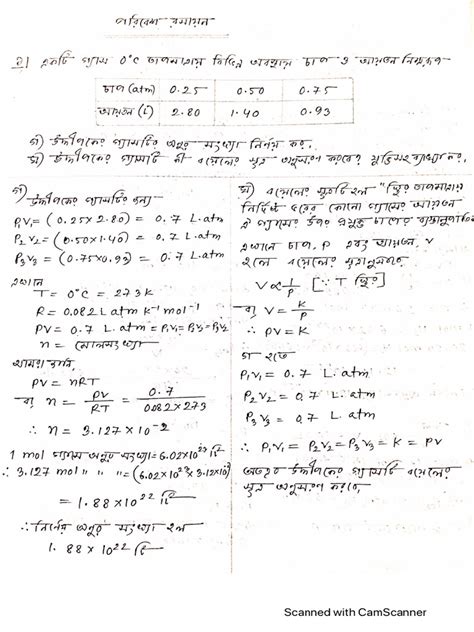 পরিবেশ রসায়ন
২। একটি গ্যাস 0°C তাপমাত্রায় বিভিন্ন অবস্থায় চাপ ও আয়তন নিম্নরূপ
চাপ (atm) 0.25 0.50 0.75
আয়তন (L) 2.80 1.40 0.93
গ) উদ্দীপকের গ্যাসটির অনুর সংখ্যা নির্নয় কর.
ঘ) উদ্দীপকের গ্যাসটি কী বয়েলের সূত্র অনুসরণ করবে? যুক্তিসহ ব্যাখ্যা কর.
গ)
উদ্দীপকের গ্যাসটির জন্য
P₁V₁ = (0.25×2.80) = 0.7 L.atm
P₂V₂ = (0.50×1.40) = 0.7 L.atm
P₃V₃ = (0.75×0.93) = 0.7 L.atm
এখানে
T = 0°C = 273 K
R = 0.082 L atm K⁻¹ mol⁻¹
PV = 0.7 L.atm = P₁V₁ = P₂V₂ = P₃V₃
n = মোলসংখ্যা
আমরা জানি,
PV = nRT
বা n = PV/RT = 0.7/0.082×273
∴ n = 3.127×10⁻²
1 mol গ্যাসে অনুর সংখ্যা = 6.02×10²³ টি
∴ 3.127 mol " " " = (6.02×10²³× 3.12×10
= 1.88×10²² টি
∴ নির্নেয় অনুর সংখ্যা হল
1.88×10²² টি
ঘ) বয়েলের সূত্রটি হল "স্থির তাপমাত্রায়
নির্দিষ্ট ভরের কোনো গ্যাসের আয়তন
ঐ গ্যাসের উপর প্রযুক্ত চাপের ব্যস্তানুপাতিক
এখানে চাপ, P এবং আয়তন, V
হলে বয়েলের সূত্রানুসারে
V ∝ 1/P [∵ T স্থির]
বা V = K/P
∴ PV = K
গ হতে
P₁V₁ = 0.7 L.atm
P₂V₂ = 0.7 L.atm
P₃V₃ = 0.7 L.atm
∴ P₁V₁ = P₂V₂ = P₃V₃ = K = PV
অতএব উদ্দীপকের গ্যাসটি বয়েলের
সূত্র অনুসরণ করবে
Scanned with CamScanner